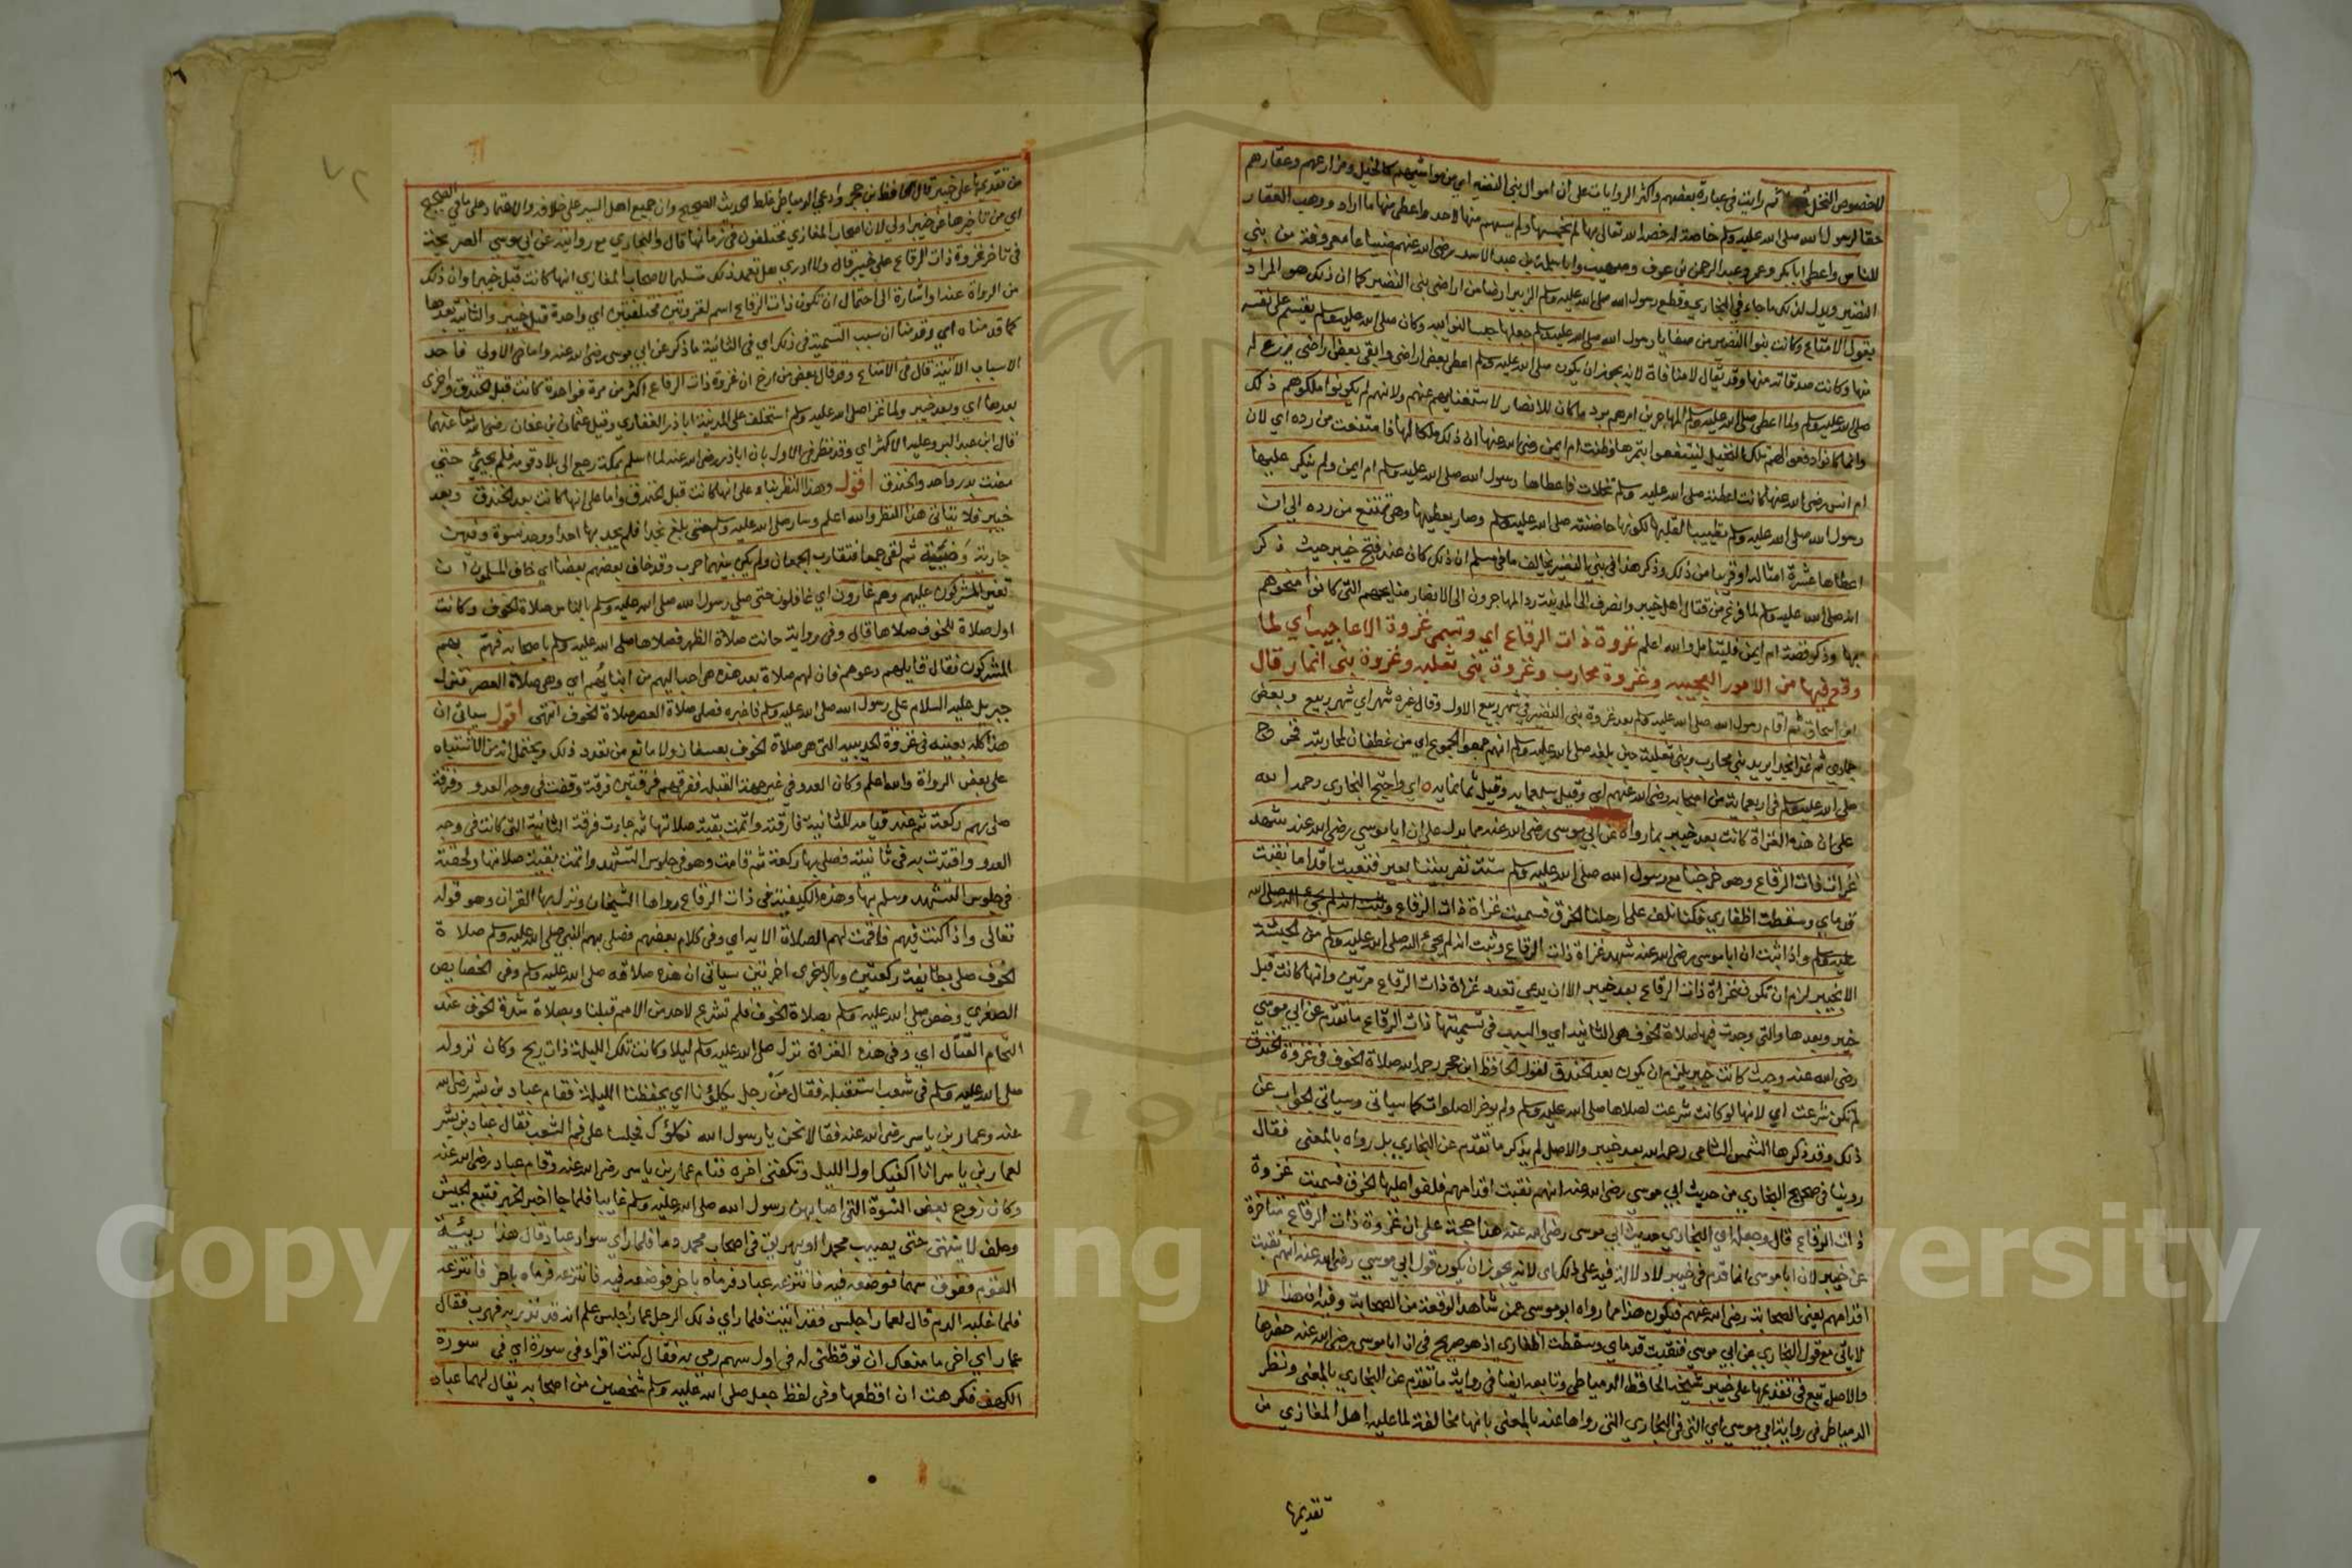 لاخصوص النخل ثم رايت في عبارة بعضهم واكثر الروايات على ان اموال بني النضير اي من مواشيهم كالخيل ومزارعهم وعقارهم
حقا لرسول الله صلى الله عليه وسلم خاصة له خصه الله تعالى بها لم يخمسها ولم يسهم منها لاحد واعطى منها ما اراد ووهب العقار
للناس واعطى ابا بكر وعمر وعبد الرحمن بن عوف وصهيب وابا سلمة بن عبد الاسد رضي الله عنهم ضياعا معروفة من بني
النضير ويدل لذلك ما جاء في البخاري وقطع رسول الله صلى الله عليه وسلم الزبير ارضا من اراضي بني النضير كما ان ذلك هو المراد
بقول الامتاع وكانت بنوا النضير من صفايا رسول الله صلى الله عليه وسلم جعلها حبسا لنوايبه وكان صلى الله عليه وسلم
منها وكانت صدقاته منها وقد يقال لا منافاة لانه يجوز ان يكون صلى الله عليه وسلم اعطى بعض اراضي وابقى بعض اراضي يزرع له
صلى الله عليه وسلم ولما اعطى صلى الله عليه وسلم المهاجرين امرهم برد ما كان للانصار لاستغنايهم عنهم ولانهم لم يكونوا ملكوهم ذلك
وانما كانوا دفعوا لهم تلك النخيل لينتفعوا بثمرها وظنت ام ايمن رضي الله عنها ان ذلك ملكا لها فامتنعت من رده اي لان
ام انس رضي الله عنها كانت اعطته صلى الله عليه وسلم نخلات فاعطاها رسول الله صلى الله عليه وسلم ام ايمن ولم ينكر عليها
رسول الله صلى الله عليه وسلم تطييبا لقلبها لكونها حاضنته صلى الله عليه وسلم وصار يعطيها وهي تمتنع من رده الى ان
اعطاها عشرة امثاله او قريبا من ذلك وذكر هذا في بني النضير يخالف ما في مسلم ان ذلك كان عند فتح خيبر حيث ذكر
انه صلى الله عليه وسلم لما فرغ من قتال اهل خيبر وانصرف الى المدينة رد المهاجرون الى الانصار منايحهم التي كانوا منحوهم
بها وذكر قصة ام ايمن فليتامل والله اعلم غزوة ذات الرقاع اي وتسمى غزوة الاعاجيب اي لما
وقع فيها من الامور العجيبه وغزوة محارب وغزوة بني ثعلبه وغزوة بني انمار قال
ابن اسحاق ثم اقام رسول الله صلى الله عليه وسلم بعد غزوة بني النضير في شهر ربيع الاول وقال غيره شهراي شهر ربيع وبعض
جمادي ثم غزا نجدا يريد بني محارب وبني ثعلبة حين بلغه صلى الله عليه وسلم انهم جمعوا الجموع اي من غطفان لمحاربته فخرج
صلى الله عليه وسلم في اربعماية من اصحابه رضي الله عنهم اي وقيل سبعمايه وقيل ثمانمايه اي واحتج البخاري رحمه الله
على ان هذه الغزاة كانت بعد خيبر بما رواه عن ابي موسى رضي الله عنه مما يدل على ان ابا موسى رضي الله عنه شهد
غزات ذات الرقاع وهو خرجنا مع رسول الله صلى الله عليه وسلم ستة نفر بيننا بعير فنقبت اقدامنا نقبت
قدماي وسقطت اظفاري فكنا نلف على ارجلنا الخرق فسميت غزاة ذات الرقاع
عليه وسلم واذا ثبت ان ابا موسى رضي الله عنه شهد غزاة ذات الرقاع وثبت انه لم يجئ اليه صلى الله عليه وسلم من الحبشة
الا بخيبر لزم ان تكون غزاة ذات الرقاع بعد خيبر الا ان يدعي تعدد غزاة ذات الرقاع مرتين وانها كانت قبل
خيبر وبعدها والتي وجدت فيها صلاة الخوف هي الثانيه اي والسبب في تسميتها ذات الرقاع ما تقدم عن ابي موسى
رضي الله عنه وحيث كانت خيبر يلزم ان يكون بعد الخندق لقول الحافظ ابن حجر رحمه الله صلاة الخوف في غزوة الخندق
لم تكن شرعت اي لانها لو كانت شرعت لصلاها صلى الله عليه وسلم ولم يوخر الصلوات كما سياتي وسياتي الجواب عن
ذلك وقد ذكرها الشمس الشامي رحمه الله بعد خيبر والاصل لم يذكر ما تقدم عن البخاري بل رواه بالمعنى فقال
روينا في صحيح البخاري من حديث ابي موسى رضي الله عنه انهم نقبت اقدامهم فلفوا عليها الخرق فسميت غزوة
ذات الرقاع قال وجعل اي البخاري حديث ابي موسى رضي الله عنه هذا حجة على ان غزوة ذات الرقاع متاخرة
عن خيبر لان ابا موسى انما قدم في خيبر لا دلالة فيه على ذلك اي لانه يجوز ان يكون قول ابي موسى رضي الله عنه انهم نقبت
اقدامهم يعني الصحابة رضي الله عنهم فيكون هذا مما رواه ابو موسى عمن شاهد الوقعة من الصحابة وفيه ان هذا لا
لا ياتي مع قول البخاري عن ابي موسى فنقبت قدماي وسقطت اظفاري اذ هو صريح في ان ابا موسى رضي الله عنه حضرها
والاصل تبع في تقديمها على خيبر شيخه الحافظ الدمياطي وتابعه ايضا في رواية ما تقدم عن البخاري بالمعنى ونظر
الدمياطي في رواية ابي موسى اي التي في البخاري التي رواها عنه بالمعنى بانها مخالفة لما عليه اهل المغازي من
تقديمها
من تقديمها على خيبر قال الحافظ ابن حجر وادعى الدمياطي غلط الحديث الصحيح وان جميع اهل السير على خلافه والاعتماد على ما في الصحيح
اي من تاخرها عن خيبر اولى لان اصحاب المغازي مختلفون في زمانها قال والبخاري مع روايته عن ابي موسى الصريحة
في تاخر غزوة ذات الرقاع على خيبر قال ولا ادري هل تعمد ذلك تسليما لاصحاب المغازي انها كانت قبل خيبر او ان ذلك
من الرواة عنه او اشارة الى احتمال ان تكون ذات الرقاع اسم لغزوتين مختلفتين اي واحدة قبل خيبر والثانية بعدها
كما قدمناه اي وقدمنا ان سبب التسمية في ذلك اي في الثانية ما ذكر عن ابي موسى رضي الله عنه واما في الاولى فاحد
الاسباب الاتية قال في الامتاع وقد قال بعض من ارخ ان غزوة ذات الرقاع اكثر من مرة فواحدة كانت قبل الخندق واخرى
بعدها اي وبعد خيبر ولما غزا صلى الله عليه وسلم استخلف على المدينة ابا ذر الغفاري وقيل عثمان بن عفان رضي الله تعالى عنهما
قال ابن عبد البر وعليه الاكثر اي وقد نظر في الاول بان ابا ذر رضي الله عنه لما اسلم بمكة رجع الى بلاد قومه فلم يجئ حتى
مضت بدر واحد والخندق اقول وهذا النظر بناء على انها كانت قبل الخندق واما على انها كانت بعد الخندق وبعد
خيبر فلا يتاتى هذا النظر والله اعلم وسار صلى الله عليه وسلم حتى بلغ نجدا فلم يجد بها احدا ووجد نسوة وفيهن
جارية وضيئة ثم لقي جمعا فتقارب الجمعان ولم يكن بينهما حرب وقد خاف بعضهم بعضا اي خاف المسلمون ان
تغير المشركون عليهم وهم غارون اي غافلون حتى صلى رسول الله صلى الله عليه وسلم بالناس صلاة الخوف وكانت
اول صلاة للخوف صلاها قال وفي رواية حانت صلاة الظهر فصلاها صلى الله عليه وسلم باصحابه فهم بهم
المشركون فقال قايلهم دعوهم فان لهم صلاة بعد هذه هي احب اليهم من ابنائهم اي وهي صلاة العصر فنزل
جبريل عليه السلام على رسول الله صلى الله عليه وسلم فاخبره فصلى صلاة العصر صلاة الخوف انتهى اقول سياتي ان
هذا كله بعينه في غزوة الحديبيه التي هي صلاة الخوف بعسفان ولا مانع من تعدد ذلك ويحتمل انه من الاشتباه
على بعض الرواة والله اعلم وكان العدو في غير جهة القبله ففرقهم فرقتين فرقة وقفت في وجه العدو وفرقة
صلى بهم ركعة ثم عند قيامه للثانية فارقته واتمت بقية صلاتها ثم جاءت فرقة الثانية التي كانت في وجه
العدو واقتدت به في ثانيته فصلى بها ركعة ثم قامت وهو في جلوس التشهد واتمت بقية صلاتها ولحقته
في جلوس التشهد وسلم بها وهذه الكيفية في ذات الرقاع رواها الشيخان ونزل بها القران وهو قوله
تعالى واذا كنت فيهم فاقمت لهم الصلاة الايه اي وفي كلام بعضهم فصلى بهم النبي صلى الله عليه وسلم صلاة
الخوف صلى بطايفة ركعتين وبالاخرى اخرتين سياتي ان هذه صلاته صلى الله عليه وسلم وفي الخصايص
الصغرى وخص صلى الله عليه وسلم بصلاة الخوف فلم تشرع لاحد من الامم قبلنا وبصلاة شدة الخوف عند
التحام القتال اي وفي هذه الغزاة نزل صلى الله عليه وسلم ليلا وكانت تلك الليلة ذات ريح وكان نزوله
صلى الله عليه وسلم في شعب استقبله فقال من رجل يكلؤنا اي يحفظنا الليلة فقام عباد بن بشر رضي الله
عنه وعمار بن ياسر رضي الله عنه فقالا نحن يا رسول الله نكلؤك فجلسا على فم الشعب فقال عباد بن بشر
لعمار بن ياسر انا اكفيك اول الليل وتكفني اخره فنام عمار بن ياسر رضي الله عنه وقام عباد رضي الله عنه
وكان زوج بعض النسوة التي اصابهن رسول الله صلى الله عليه وسلم غايبا فلما جا اخبر الخبر فتبع الجيش
وحلف لا ينتهي حتى يصيب محمدا او يهريق في اصحاب محمد دما فلما راي سواد عباد قال هذا ربيئة
القوم ففوق سهما فوضعه فيه فانتزعه عباد فرماه باخر فوضعه فيه فانتزعه فرماه باخر فانتزعه
فلما غلبه الدم قال لعمار اجلس فقد اتيت فلما راي ذلك الرجل عمار اجلس علم انه قد نذر به فهرب فقال
عمار اي اخي ما منعك ان توقظني له في اول سهم رمي به فقال كنت اقراء في سورة اي في سورة
الكهف فكرهت ان اقطعها وفي لفظ جعل صلى الله عليه وسلم شخصين من اصحابه يقال لهما عباد
Copyright © King Saud University